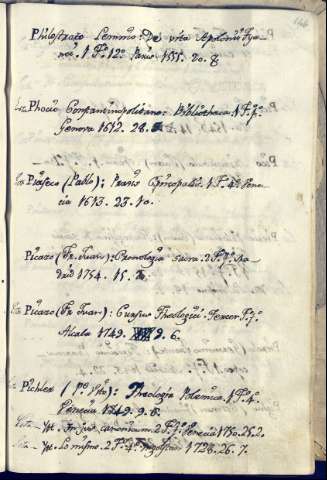 Philostrato Lemnio: De vita Apolonii Tya-
nei. 1 Tº 12º Paris 1555. 20. 8.
Phocio Constantinopolitano: Bibliotheca 1 Tº fº
Genova 1612. 28.
Piaseco (Pablo): Praxis Episcopalis. 1 Tº 4º Vene-
cia 1613. 23. 10.
Picazo (Fr. Juan): Cronologia sacra. 2 Tº fº Ma-
drid 1754. 15.
Picazo (Fr. Juan): Cursus Theologici. Tercer Tº fº
Alcala 1749. 9. 6.
Pichler (Pe Vito): Theologia Polemica 1 Tº 4º
Venecia 1749. 9. 6.
Ypt. In jus canonicum. 2 Tº fº Venecia 1750. 25. 2.
Ypt. Lo mismo. 2 Tº 4º 1728. 26. 7.